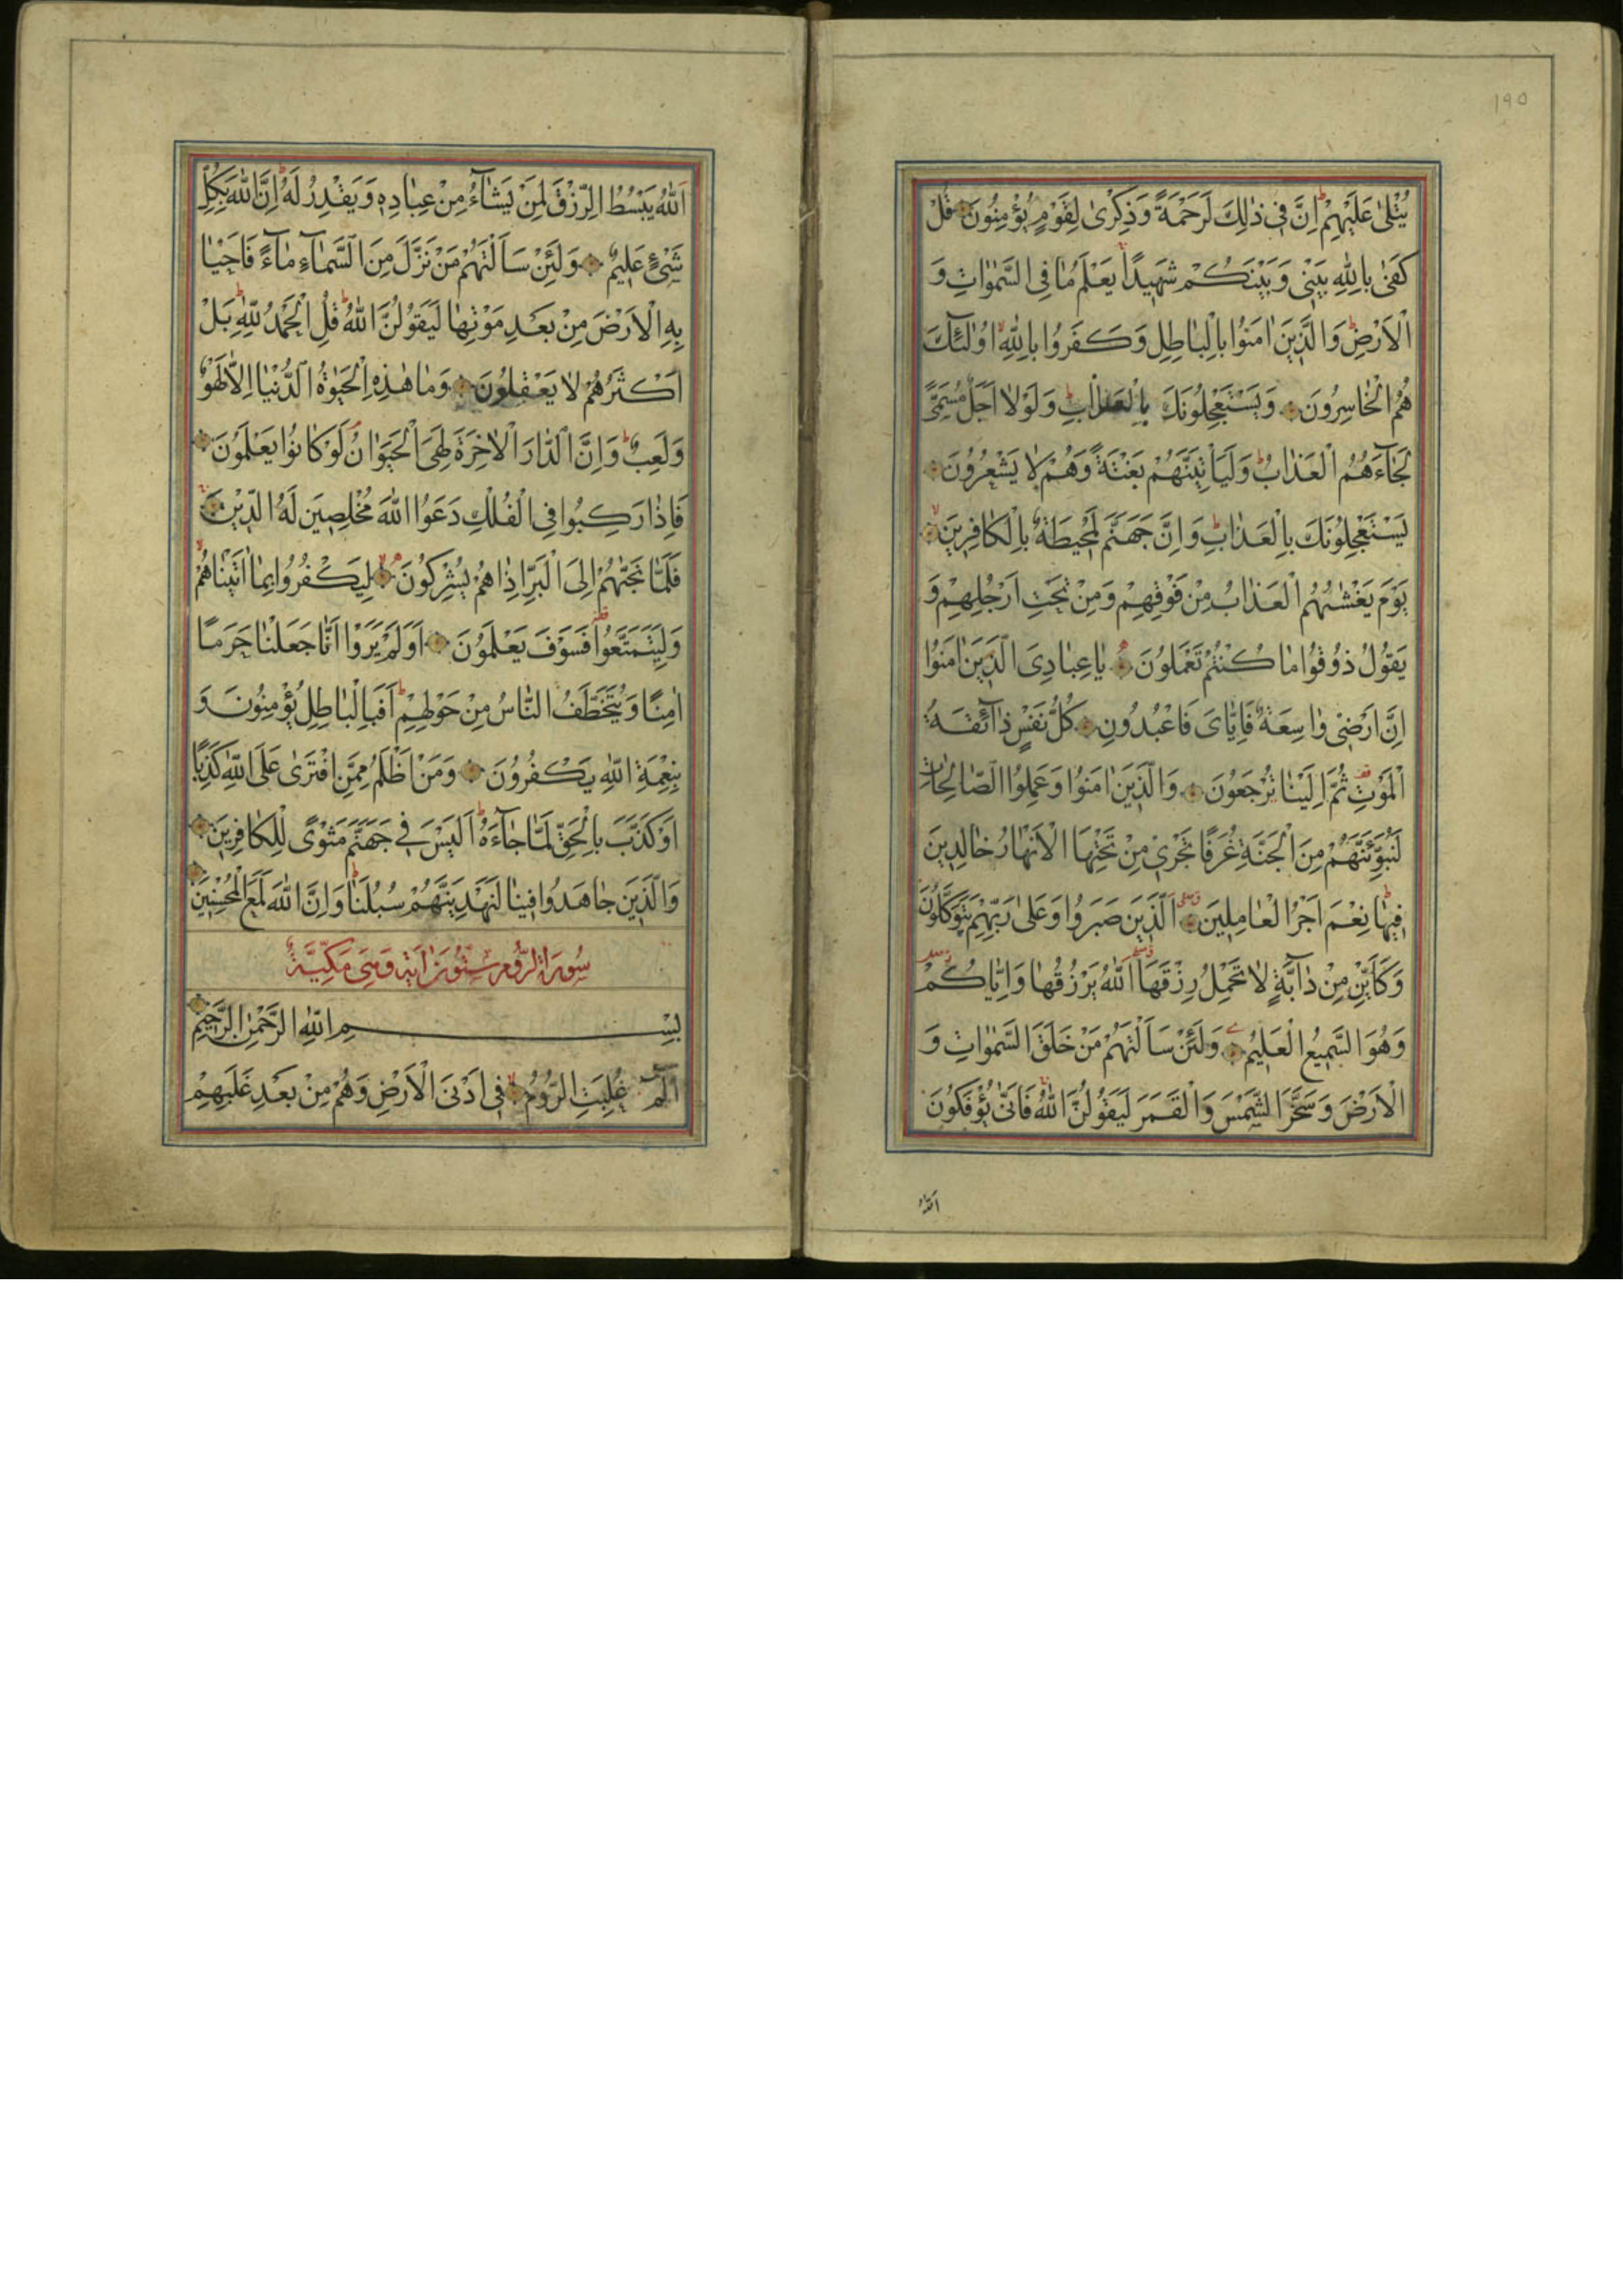 ١٩٥
يُتْلىٰ عَلَيْهِمْ ط اِنَّ فِي ذٰلِكَ لَرَحْمَةً وَذِكْرىٰ لِقَوْمٍ يُؤْمِنُونَ قُلْ
كَفىٰ بِاللّٰهِ بَيْنِي وَبَيْنَكُمْ شَهِيدًا يَعْلَمُ مٰا فِي السَّمٰوٰاتِ وَ
الْاَرْضِ ط وَالَّذِينَ اٰمَنُوا بِالْبٰاطِلِ وَكَفَرُوا بِاللّٰهِ لا اُولٰئِكَ
هُمُ الْخٰاسِرُونَ وَيَسْتَعْجِلُونَكَ بِالْعَذٰابِ ط وَلَوْلٰا اَجَلٌ مُسَمًّى
لَجٰاءَهُمُ الْعَذٰابُ ط وَلَيَأْتِيَنَّهُمْ بَغْتَةً وَهُمْ لٰا يَشْعُرُونَ
يَسْتَعْجِلُونَكَ بِالْعَذٰابِ ط وَاِنَّ جَهَنَّمَ لَمُحِيطَةٌ بِالْكٰافِرِينَ لا
يَوْمَ يَغْشٰيهُمُ الْعَذٰابُ مِنْ فَوْقِهِمْ وَمِنْ تَحْتِ اَرْجُلِهِمْ وَ
يَقُولُ ذُوقُوا مٰا كُنْتُمْ تَعْمَلُونَ يٰا عِبٰادِيَ الَّذِينَ اٰمَنُوا
اِنَّ اَرْضِي وٰاسِعَةٌ فَاِيّٰايَ فَاعْبُدُونِ كُلُّ نَفْسٍ ذٰائِقَةُ
الْمَوْتِ قف ثُمَّ اِلَيْنٰا تُرْجَعُونَ وَالَّذِينَ اٰمَنُوا وَعَمِلُوا الصّٰالِحٰاتِ
لَنُبَوِّئَنَّهُمْ مِنَ الْجَنَّةِ غُرَفًا تَجْرِي مِنْ تَحْتِهَا الْاَنْهٰارُ خٰالِدِينَ
فِيهٰا ط نِعْمَ اَجْرُ الْعٰامِلِينَ اَلَّذِينَ صَبَرُوا وَعَلىٰ رَبِّهِمْ يَتَوَكَّلُونَ
وَكَاَيِّنْ مِنْ دٰابَّةٍ لٰا تَحْمِلُ رِزْقَهَا اَللّٰهُ يَرْزُقُهٰا وَاِيّٰاكُمْ
وَهُوَ السَّمِيعُ الْعَلِيمُ وَلَئِنْ سَاَلْتَهُمْ مَنْ خَلَقَ السَّمٰوٰاتِ وَ
الْاَرْضَ وَسَخَّرَ الشَّمْسَ وَالْقَمَرَ لَيَقُولُنَّ اللّٰهُ فَاَنّىٰ يُؤْفَكُونَ
اَللّٰهُ
اَللّٰهُ يَبْسُطُ الرِّزْقَ لِمَنْ يَشٰاءُ مِنْ عِبٰادِهِ وَيَقْدِرُ لَهُ ط اِنَّ اللّٰهَ بِكُلِّ
شَيْءٍ عَلِيمٌ وَلَئِنْ سَاَلْتَهُمْ مَنْ نَزَّلَ مِنَ السَّمٰاءِ مٰاءً فَاَحْيٰا
بِهِ الْاَرْضَ مِنْ بَعْدِ مَوْتِهٰا لَيَقُولُنَّ اللّٰهُ ط قُلِ الْحَمْدُ لِلّٰهِ ط بَلْ
اَكْثَرُهُمْ لٰا يَعْقِلُونَ وَمٰا هٰذِهِ الْحَيٰوةُ الدُّنْيٰا اِلّٰا لَهْوٌ
وَلَعِبٌ ط وَاِنَّ الدّٰارَ الْاٰخِرَةَ لَهِيَ الْحَيَوٰانُ لَوْ كٰانُوا يَعْلَمُونَ
فَاِذٰا رَكِبُوا فِي الْفُلْكِ دَعَوُا اللّٰهَ مُخْلِصِينَ لَهُ الدِّينَ
فَلَمّٰا نَجّٰيهُمْ اِلَى الْبَرِّ اِذٰا هُمْ يُشْرِكُونَ لا لِيَكْفُرُوا بِمٰا اٰتَيْنٰاهُمْ لا
وَلِيَتَمَتَّعُوا قف فَسَوْفَ يَعْلَمُونَ اَوَلَمْ يَرَوْا اَنّٰا جَعَلْنٰا حَرَمًا
اٰمِنًا وَيُتَخَطَّفُ النّٰاسُ مِنْ حَوْلِهِمْ ط اَفَبِالْبٰاطِلِ يُؤْمِنُونَ وَ
بِنِعْمَةِ اللّٰهِ يَكْفُرُونَ وَمَنْ اَظْلَمُ مِمَّنِ افْتَرىٰ عَلَى اللّٰهِ كَذِبًا
اَوْ كَذَّبَ بِالْحَقِّ لَمّٰا جٰاءَهُ ط اَلَيْسَ فِي جَهَنَّمَ مَثْوًى لِلْكٰافِرِينَ
وَالَّذِينَ جٰاهَدُوا فِينٰا لَنَهْدِيَنَّهُمْ سُبُلَنٰا ط وَاِنَّ اللّٰهَ لَمَعَ الْمُحْسِنِينَ
سُورَةُ الرُّومِ سِتُّونَ اٰيَة وَهِيَ مَكِّيَّةٌ
بِسْمِ اللّٰهِ الرَّحْمٰنِ الرَّحِيمِ
الٓمٓ غُلِبَتِ الرُّومُ لا فِي اَدْنَى الْاَرْضِ وَهُمْ مِنْ بَعْدِ غَلَبِهِمْ